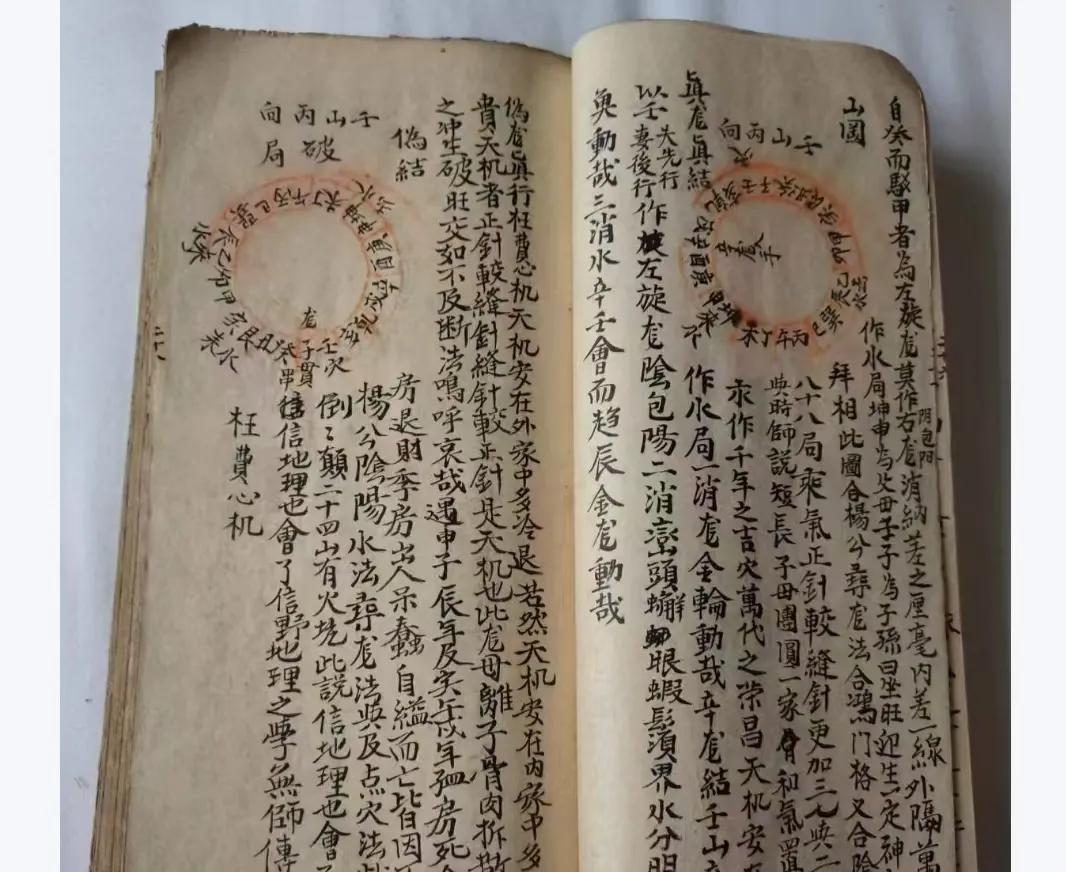 自癸而駁甲者為左旋龙莫作右龙消納差之厘毫内差一線外隔萬
陰包阳
山図
作水局坤申為父母子子為子孫曰坐旺迎生一定神
拜相此圖合楊公尋龙法合鴻门格又合陰
八十八局乘气正針較縫針更加三七與二
與時師說短長子母團圓一家和氣
求作千年之吉穴萬代之荣昌天机安
壬山丙向
穴
辛龙
乾亥壬子癸丑艮寅甲卯乙辰巽巳丙午丁未坤申庚酉辛戌
作水局一消龙金輪動哉辛龙結壬山
真龙真結
夫先行
以壬妻後行作左旋龙陰包陽二消巒頭蟹眼蝦鬚界水分明
奥動哉三消水辛壬會而趋辰金龙動哉
偽龙真行枉費心机天机安在外家中多冷退若然天机安在内家中多
貴天机者正針較縫針縫針較正針是天机也此龙母離子骨肉拆散
之冲生破旺交如不及断法嗚呼哀哉遇申子辰年及寅午戌年孤房死
偽結
房退財季房出人呆蠢自縊而亡皆因
壬山丙向
破局
楊公陰陽水法尋龙法與及点穴法
倒々顛二十四山有火坑此説信地理也會
壬穴
龙子貫
癸串
信地理也會了信野地理之學無師傳
枉費心机